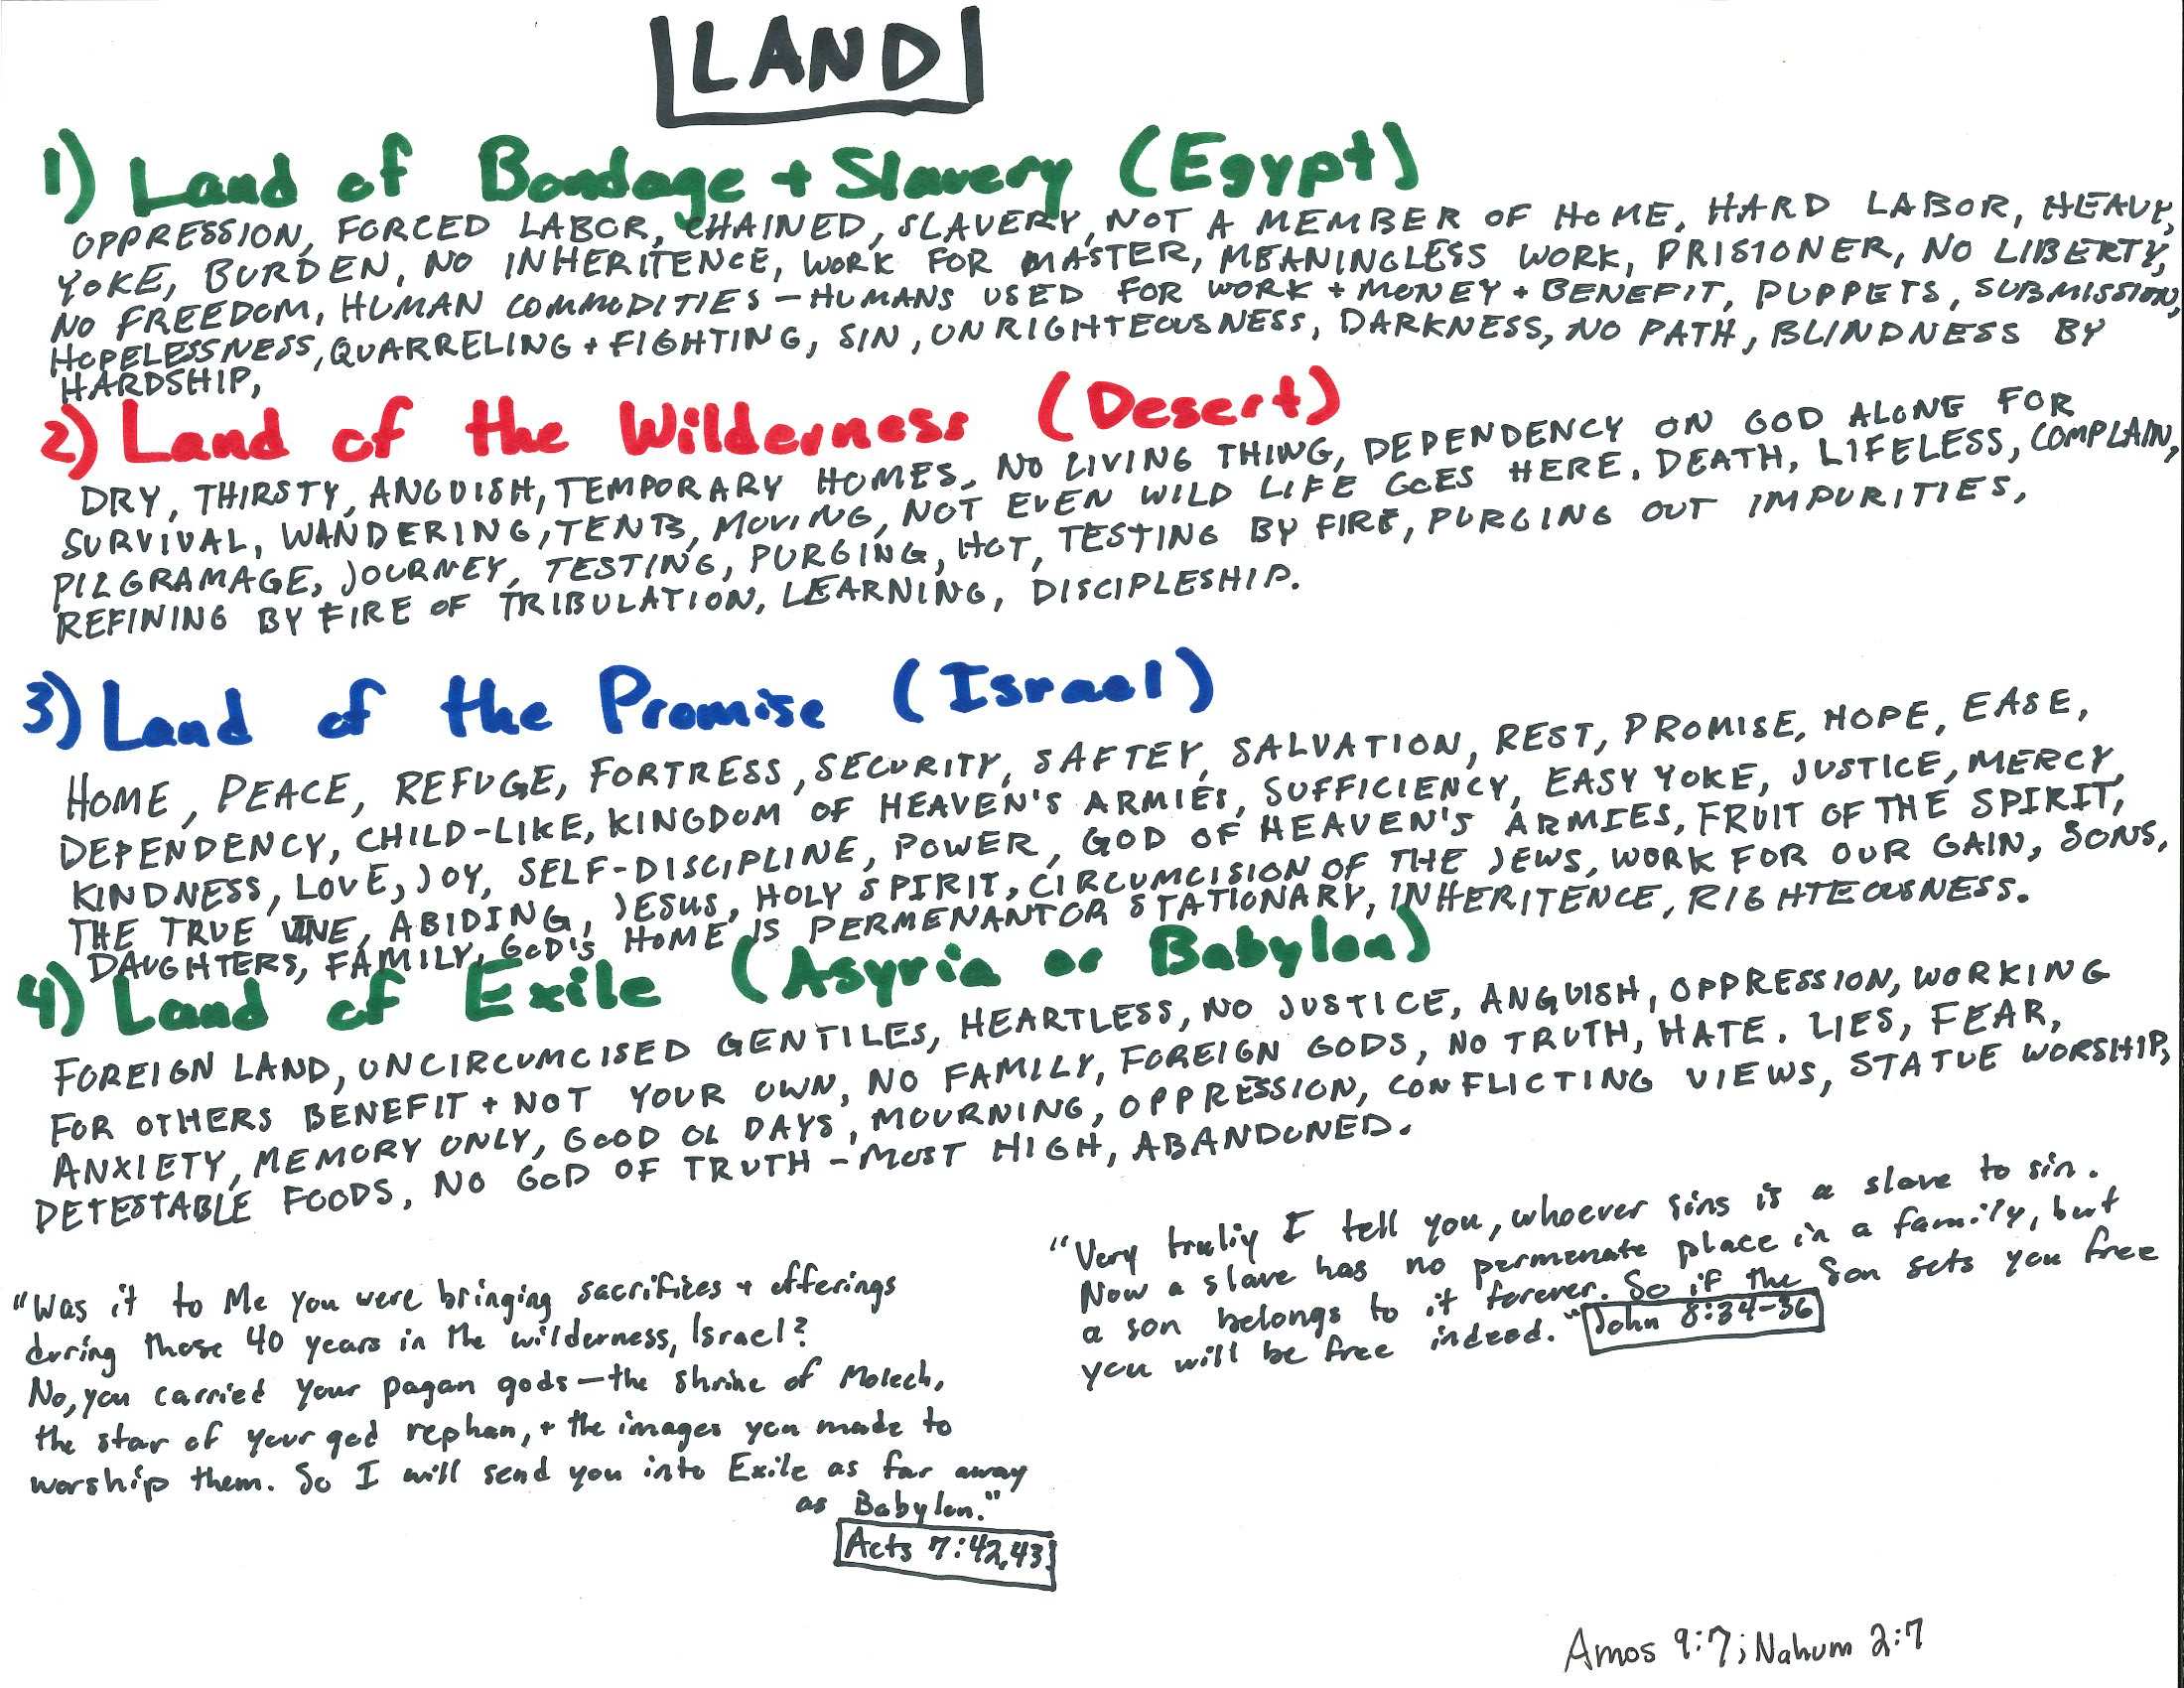 LAND
1) Land of Bondage + Slavery (Egypt)
OPPRESSION, FORCED LABOR, CHAINED, SLAVERY, NOT A MEMBER OF HOME, HARD LABOR, HEAVY,
YOKE, BURDEN, NO INHERITENCE, WORK FOR MASTER, MEANINGLESS WORK, PRISIONER, NO LIBERTY,
NO FREEDOM, HUMAN COMMODITIES - HUMANS USED FOR WORK + MONEY + BENEFIT, PUPPETS, SUBMISSION,
HOPELESSNESS, QUARRELING + FIGHTING, SIN, UNRIGHTEOUSNESS, DARKNESS, NO PATH, BLINDNESS BY
HARDSHIP,
2) Land of the Wilderness (Desert)
DRY, THIRSTY, ANGUISH, TEMPORARY HOMES, NO LIVING THING, DEPENDENCY ON GOD ALONG FOR
SURVIVAL, WANDERING, TENTS, MOVING, NOT EVEN WILD LIFE GOES HERE. DEATH, LIFELESS, COMPLAIN,
PILGRAMAGE, JOURNEY, TESTING, PURGING, HOT, TESTING BY FIRE, PURGING OUT IMPURITIES,
REFINING BY FIRE OF TRIBULATION, LEARNING, DISCIPLESHIP.
3) Land of the Promise (Israel)
HOME, PEACE, REFUGE, FORTRESS, SECURITY, SAFTEY, SALVATION, REST, PROMISE, HOPE, EASE,
DEPENDENCY, CHILD-LIKE, KINGDOM OF HEAVEN'S ARMIES, SUFFICIENCY, EASY YOKE, JUSTICE, MERCY,
KINDNESS, LOVE, JOY, SELF-DISCIPLINE, POWER, GOD OF HEAVEN'S ARMIES, FRUIT OF THE SPIRIT,
THE TRUE VINE, ABIDING, JESUS, HOLY SPIRIT, CIRCUMCISION OF THE JEWS, WORK FOR OUR GAIN, SONS,
DAUGHTERS, FAMILY, GOD'S HOME IS PERMENANT OR STATIONARY, INHERITENCE, RIGHTEOUSNESS.
4) Land of Exile (Asyria or Babylon)
FOREIGN LAND, UNCIRCUMCISED GENTILES, HEARTLESS, NO JUSTICE, ANGUISH, OPPRESSION, WORKING
FOR OTHERS BENEFIT + NOT YOUR OWN, NO FAMILY, FOREIGN GODS, NO TRUTH, HATE. LIES, FEAR,
ANXIETY, MEMORY ONLY, GOOD OL DAYS, MOURNING, OPPRESSION, CONFLICTING VIEWS, STATUE WORSHIP,
DETESTABLE FOODS, NO GOD OF TRUTH - MOST HIGH, ABANDONED.
"Was it to Me you were bringing sacrifices + offerings
during those 40 years in the wilderness, Israel?
No, you carried your pagan gods - the shrine of Molech,
the star of your god rephan, + the images you made to
worship them. So I will send you into Exile as far away
as Babylon."
Acts 7:42,43
"Very truliy I tell you, whoever sins is a slave to sin.
Now a slave has no permenate place in a family, but
a son belongs to it forever. So if the Son sets you free
you will be free indeed." John 8:34-36
Amos 9:7; Nahum 2:7